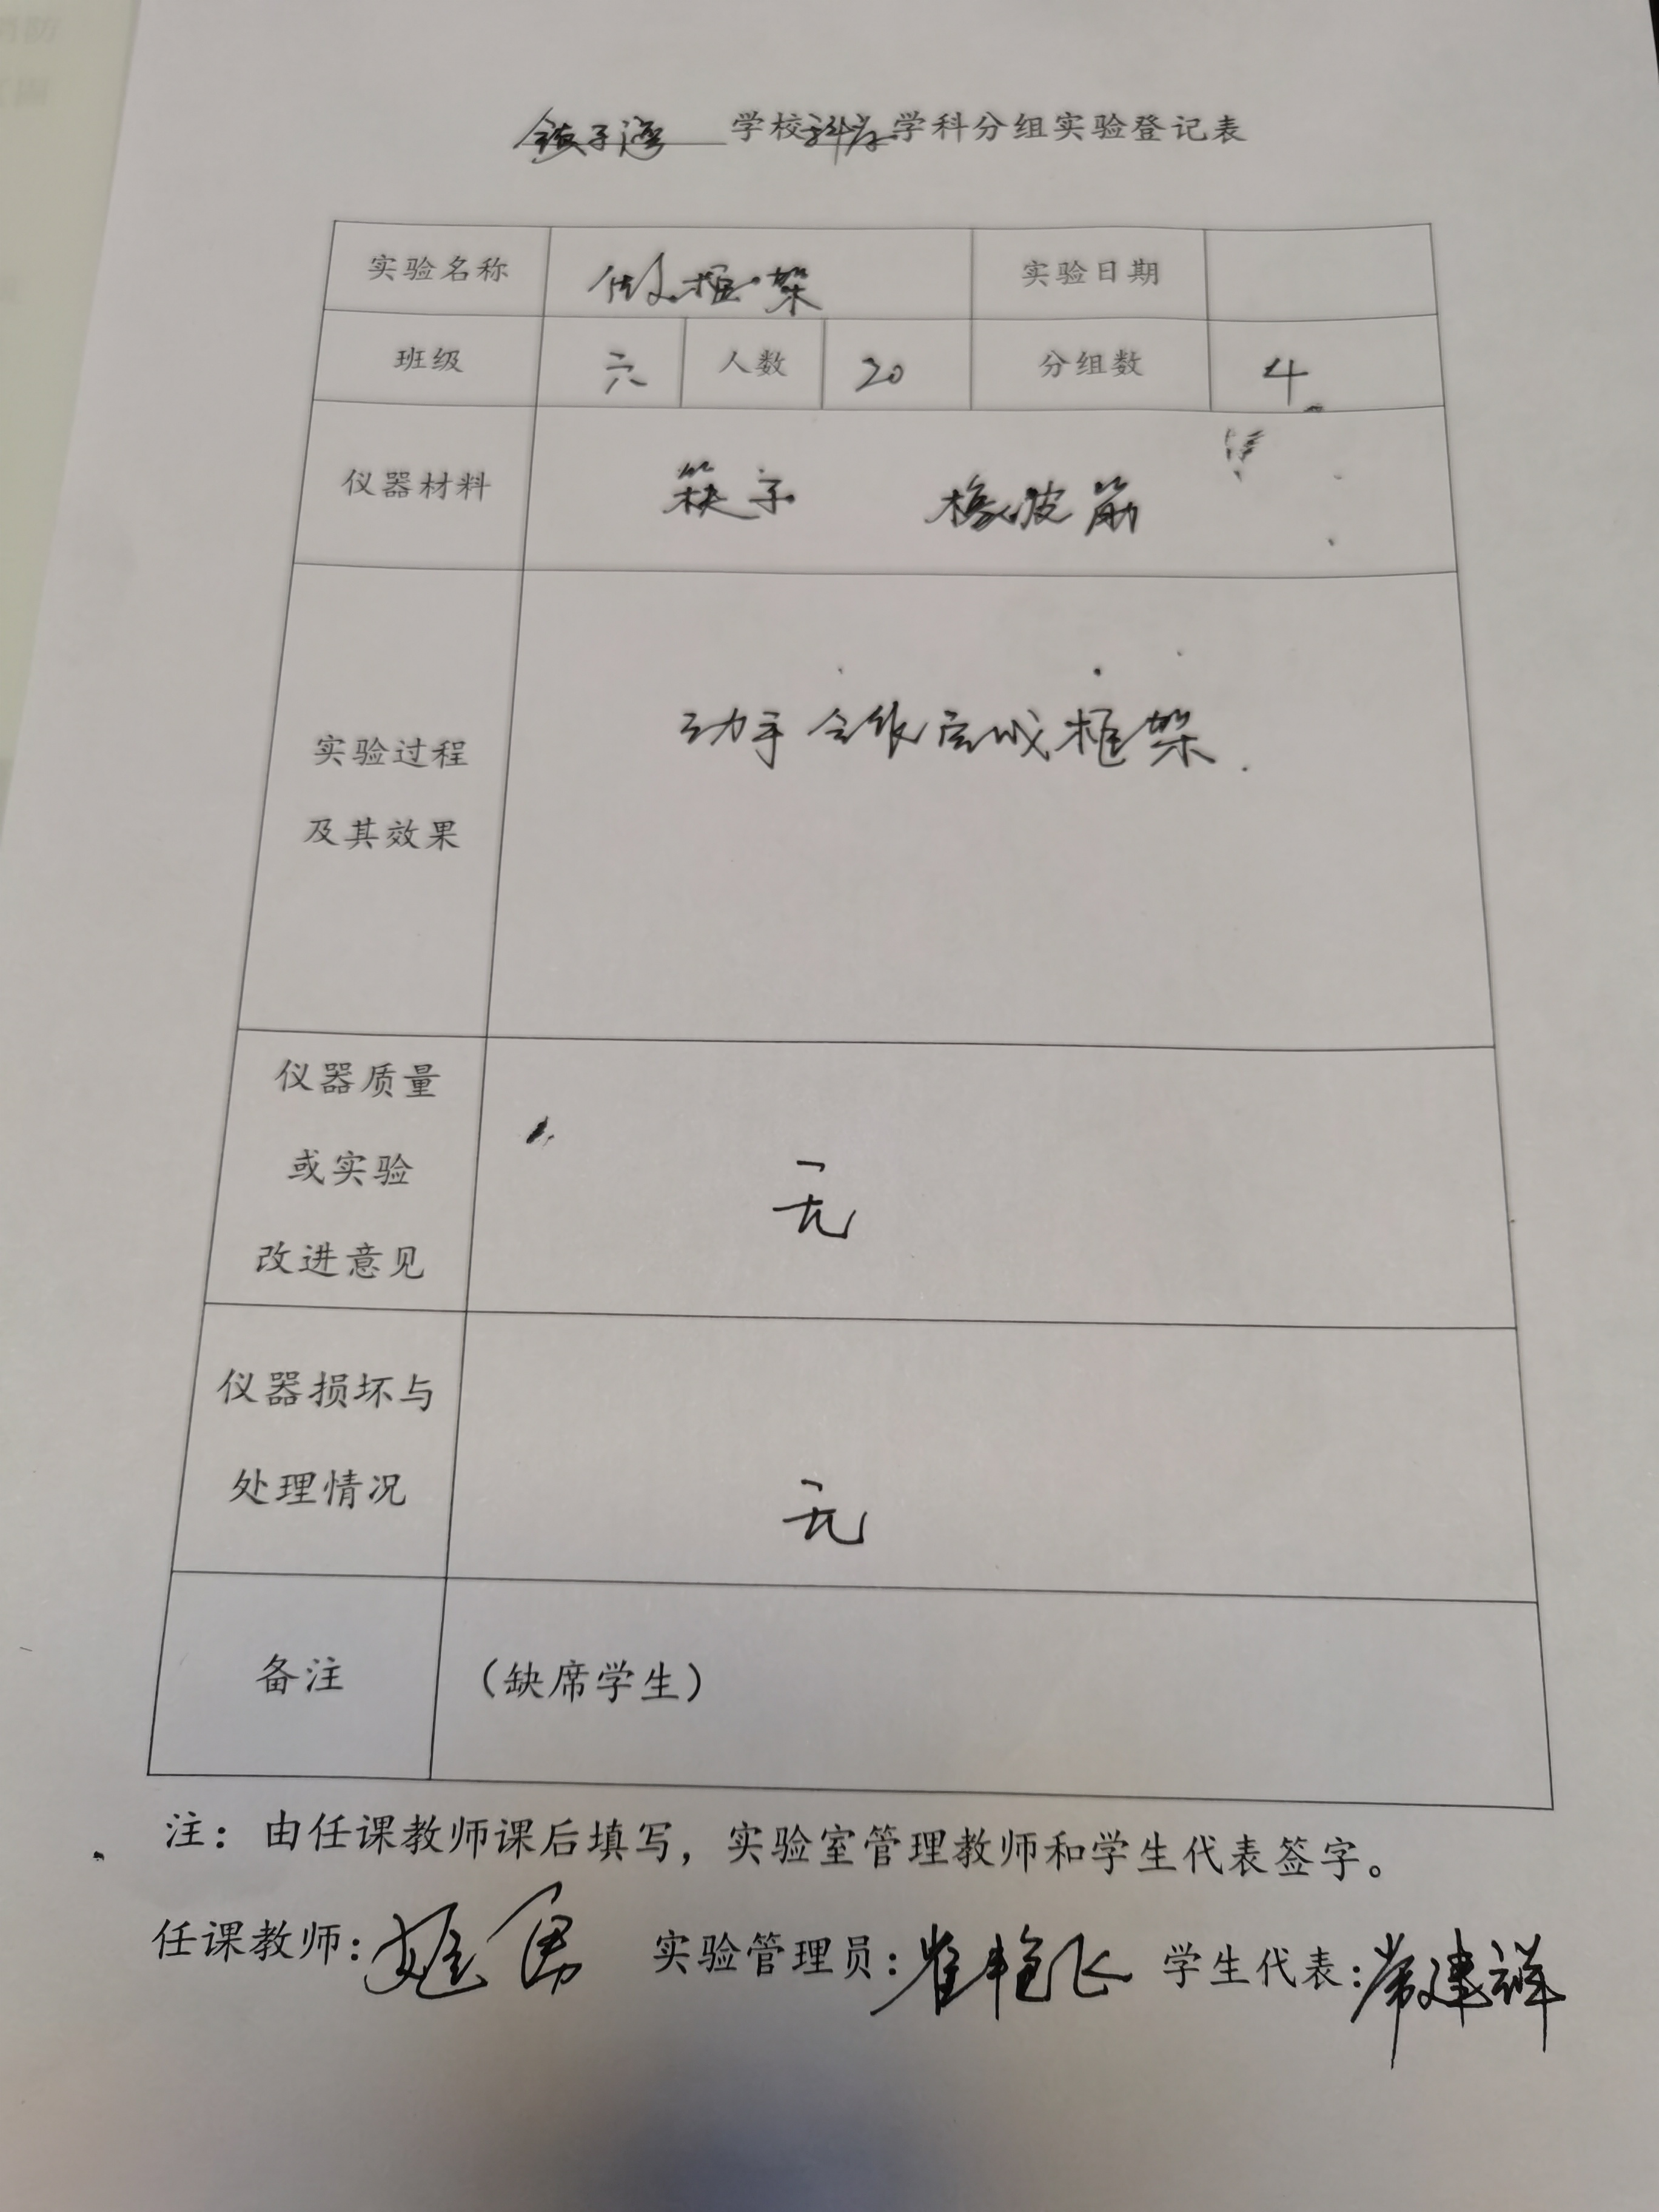 学校科学学科分组实验登记表
实验名称 做框架 实验日期
班级 六 人数 20 分组数 4
仪器材料 筷子 橡皮筋
实验过程
及其效果
动手 完成框架.
仪器质量
或实验
改进意见
无
仪器损坏与
处理情况
无
备注 (缺席学生)
注：由任课教师课后填写，实验室管理教师和学生代表签字。
任课教师: 实验管理员:崔艳飞 学生代表:常建祥